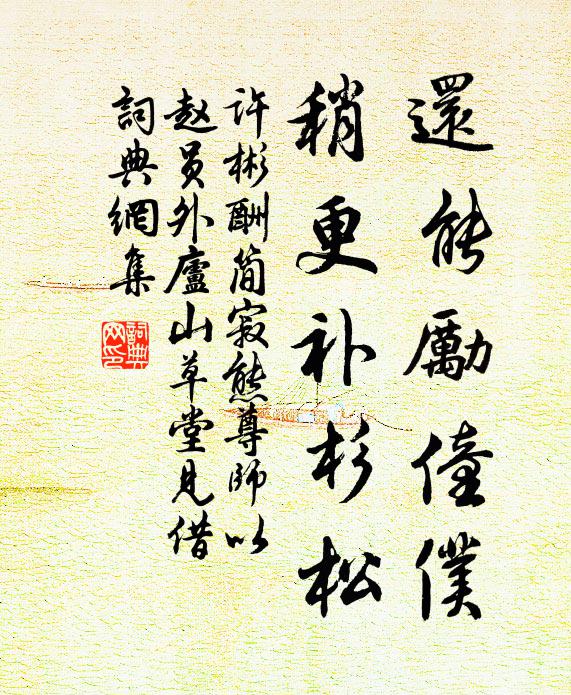 還能勵僮僕
稍更补杉松
许彬酬简寂熊尊师以
赵员外廬山草堂見借
詞典網集
詞典网印